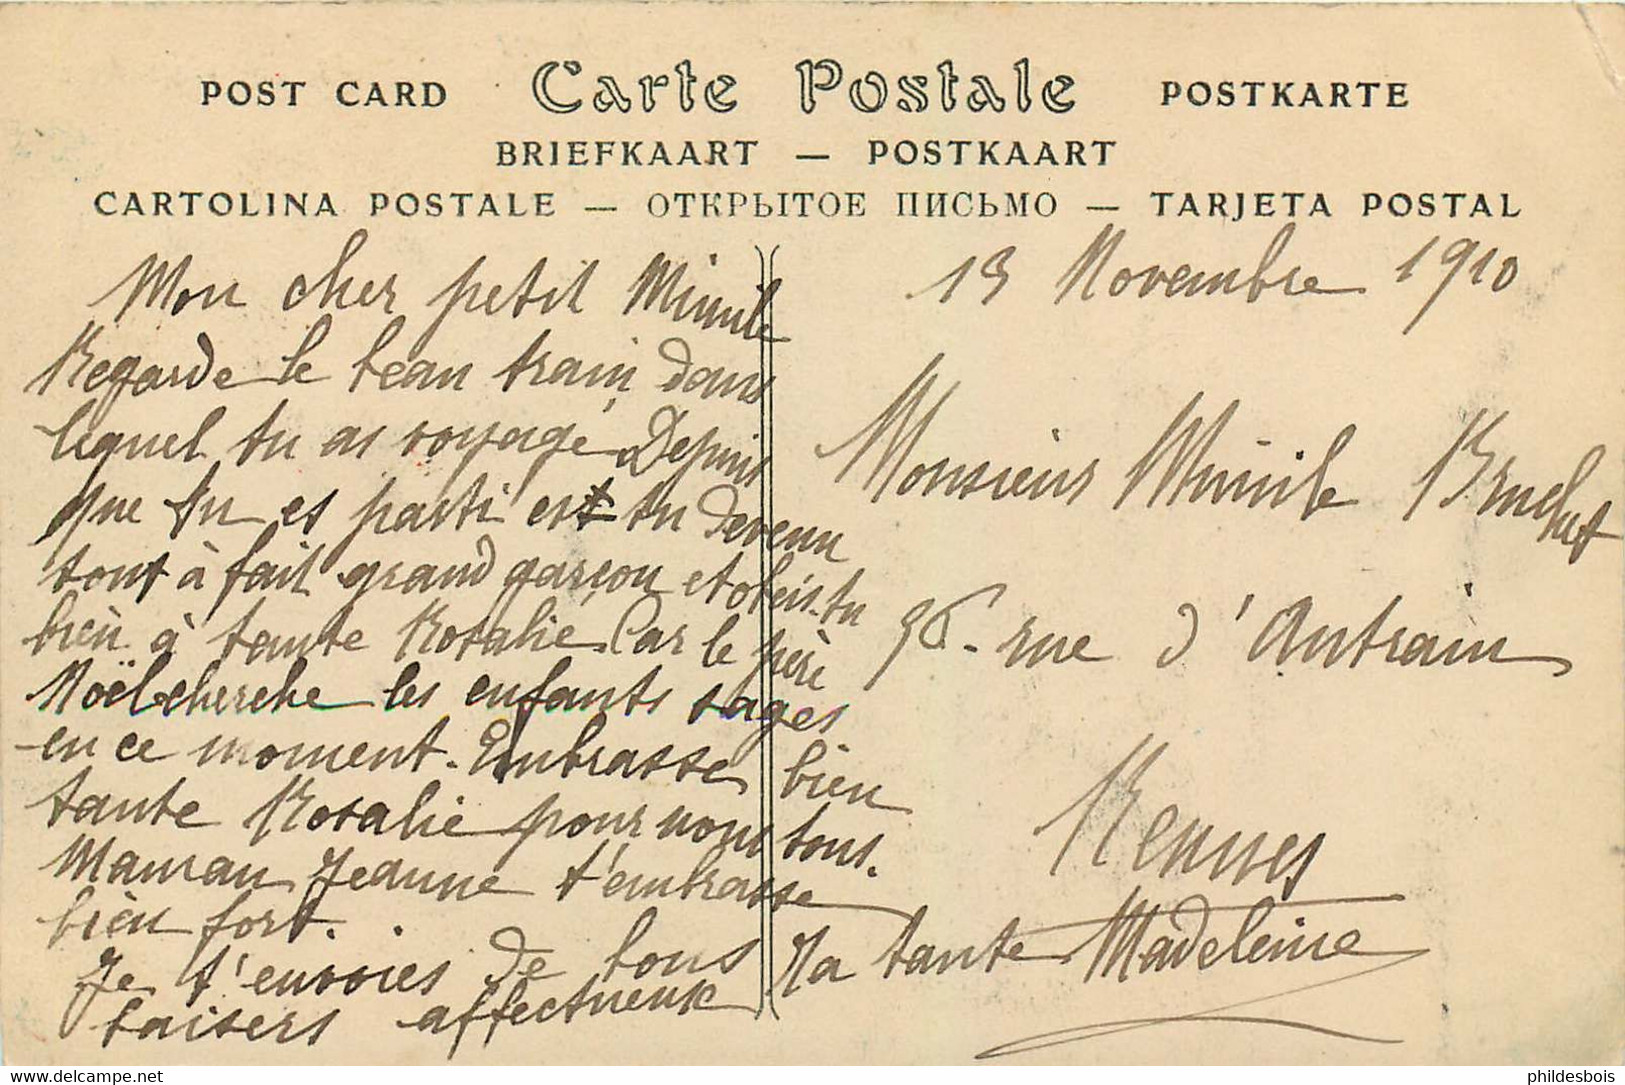 POST CARD Carte Postale POSTKARTE
BRIEFKAART — POSTKAART
CARTOLINA POSTALE — ОТКРЫТОЕ ПИСЬМО — TARJETA POSTAL
Mon cher petit Mimile
Regarde le beau train dans
lequel tu as voyagé. Depuis
que tu es parti est tu devenu
tout à fait grand garçon et obeis-tu
bien à tante Rosalie. Car le père
Noël cherche les enfants sages
en ce moment. Embrasse bien
tante Rosalie pour nous tous.
Maman Jeanne t'embrasse
bien fort.
Je t'envoies de tous
baisers affectueux
13 Novembre 1910
Monsieur Mimile Bruchet
96. rue d'Antrain
Rennes
Ta tante Madeleine
phildesbois